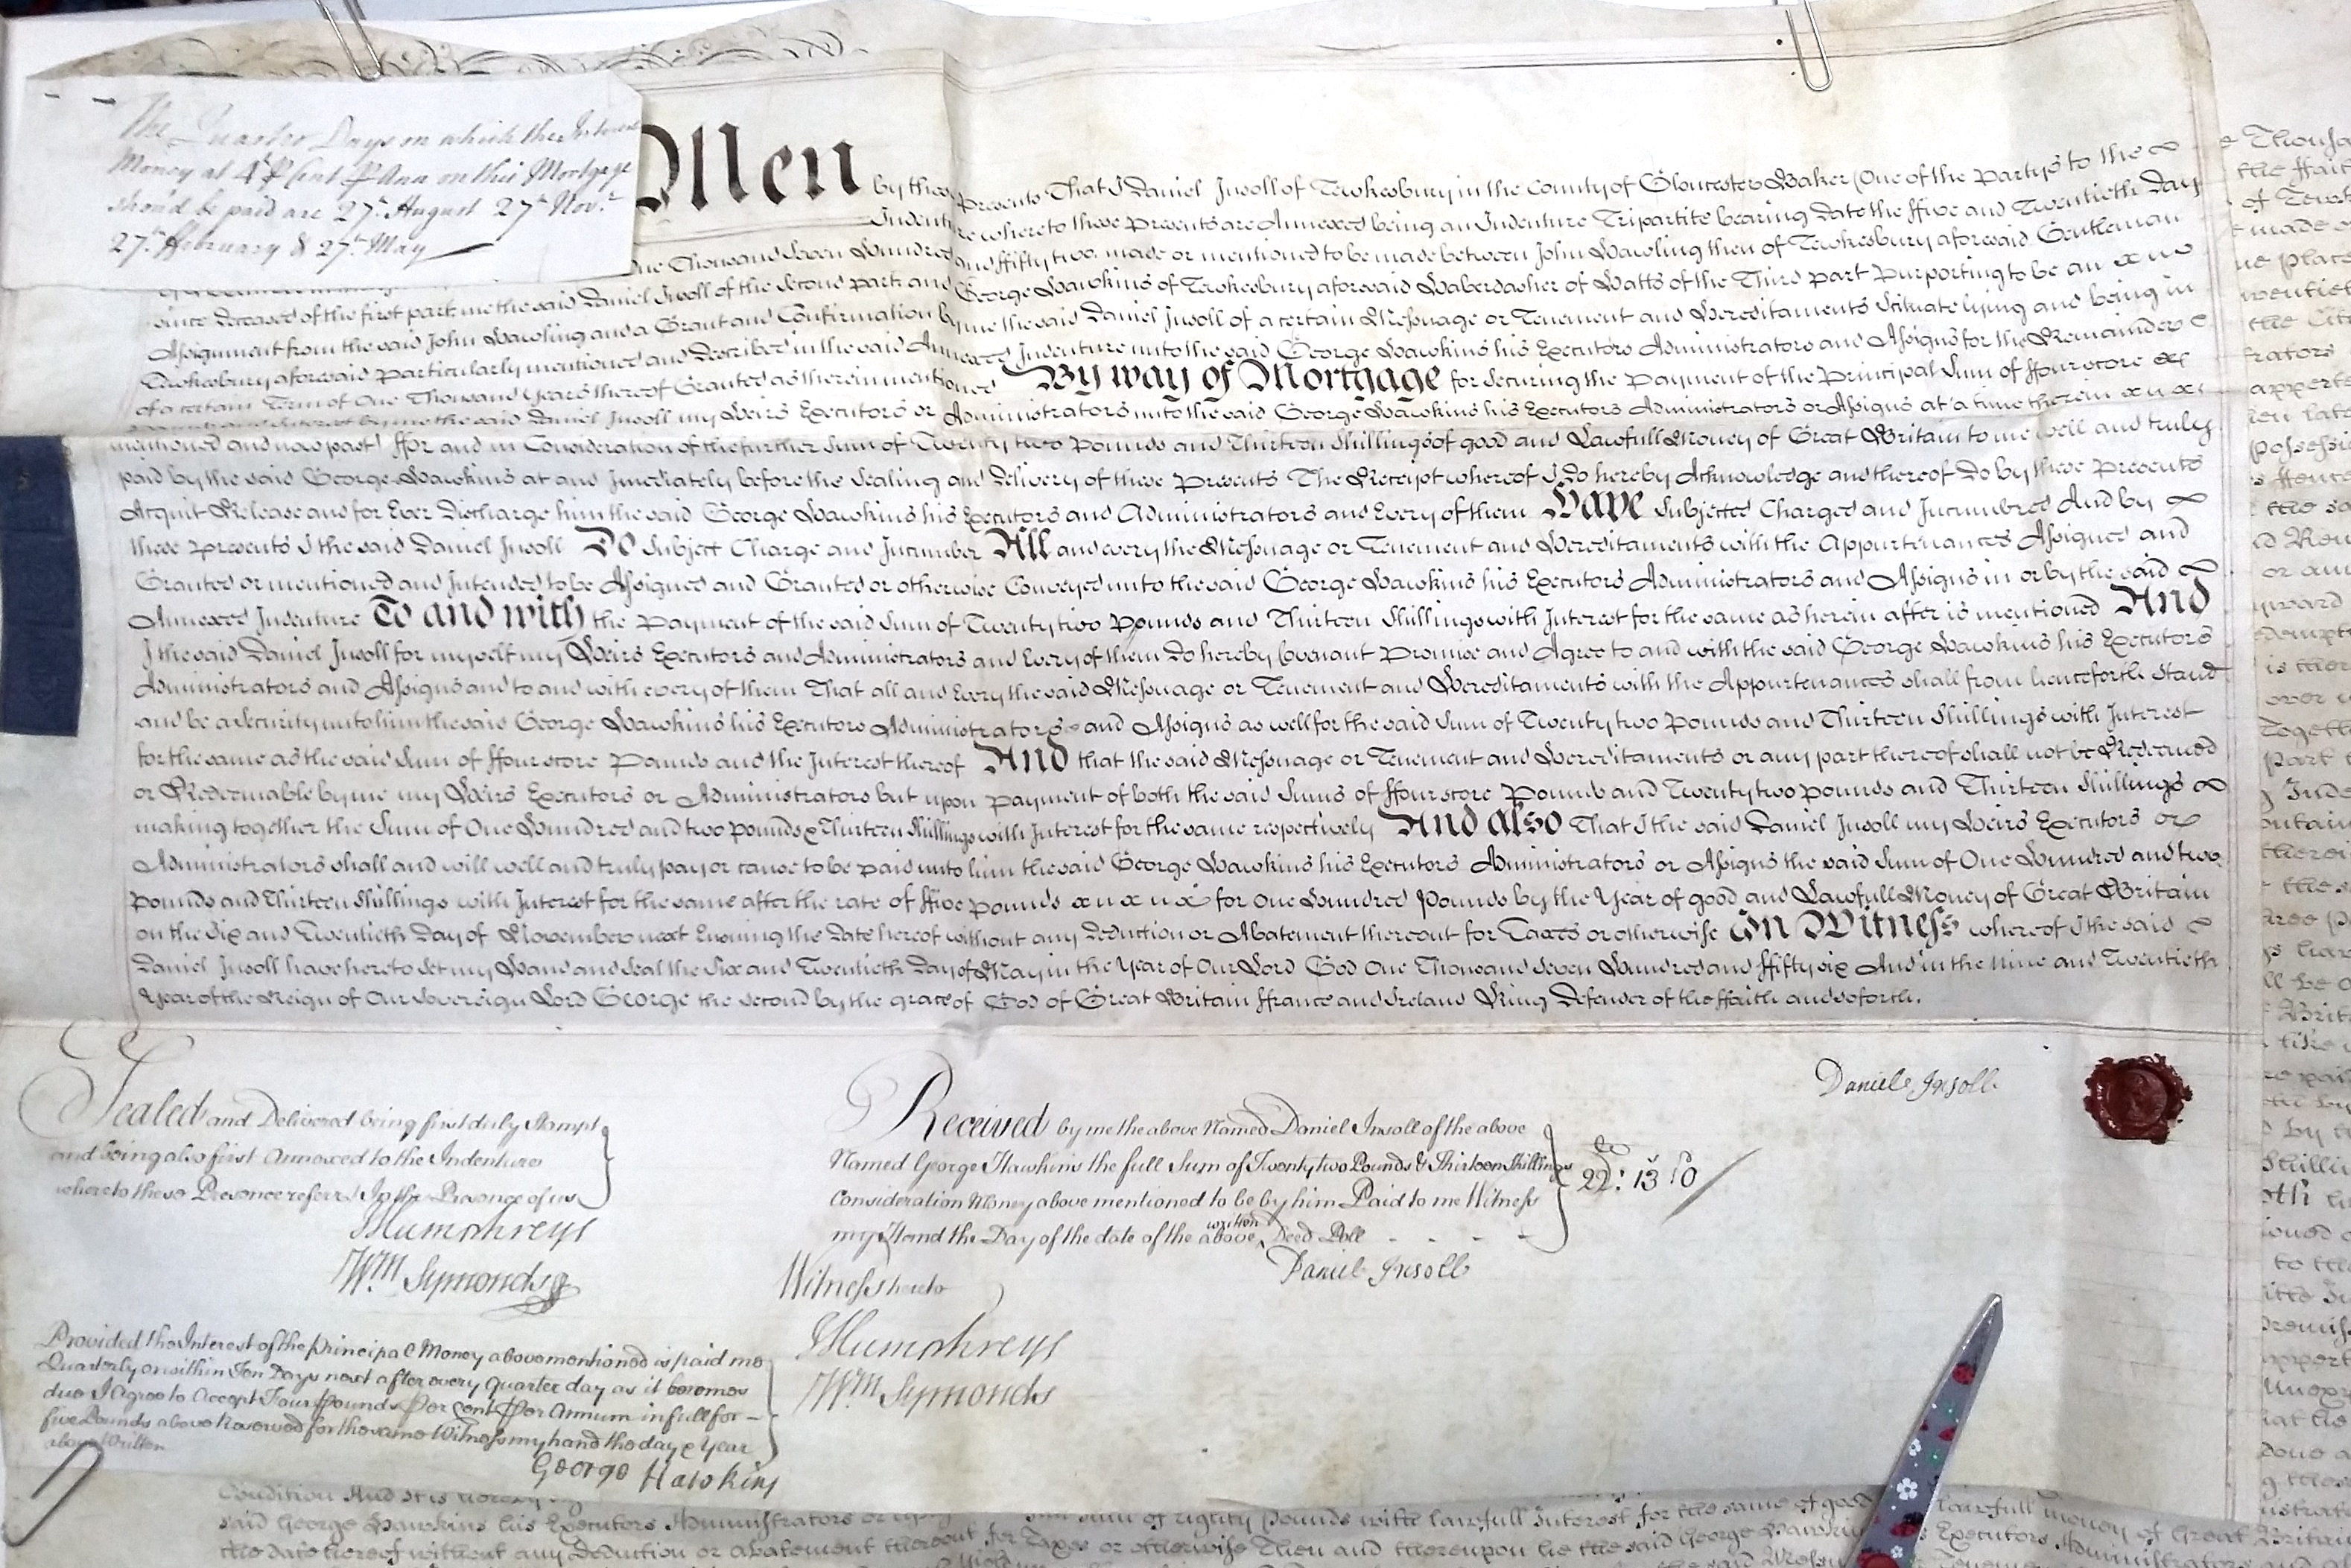 The Quarter Days on which the Interest
Money at 4 P Cent P Ann on this Mortgage
should be paid are 27th August 27th Novr.
27th ffebruary & 27th May
Men by these Presents That I Daniel Insoll of Tewkesbury in the County of Gloucester Baker (One of the Partys to the
Indenture whereto these Presents are Annexed being an Indenture Tripartite bearing Date the ffive and Twentieth Day
One Thousand Seven Hundred and ffifty two made or mentioned to be made between John Hawling then of Tewkesbury aforesaid Gentleman
since deceased of the first part me the said Daniel Insoll of the Second part and George Hawkins of Tewkesbury aforesaid Haberdasher of Hatts of the Third part Purporting to be an
Assignment from the said John Hawling and a Grant and Confirmation by me the said Daniel Insoll of a certain Messuage or Tenement and Hereditaments Situate lying and being in
Tewkesbury aforesaid particularly mentioned and described in the said Annexed Indenture unto the said George Hawkins his Executors Administrators and Assigns for the Remainder
of a certain Term of One Thousand Years thereof Granted as therein mentioned By way of Mortgage for Securing the Payment of the Principal Sum of ffourscore
and Interest by me the said Daniel Insoll my Heirs Executors or Administrators unto the said George Hawkins his Executors Administrators or Assigns at a time therein
mentioned and now past) ffor and in Consideration of the further Sum of Twenty two Pounds and Thirteen Shillings of good and Lawfull Money of Great Britain to me well and truly
paid by the said George Hawkins at and Imediately before the Sealing and Delivery of these Presents The Receipt whereof I do hereby Acknowledge and thereof Do by these Presents
Acquit Release and for Ever Discharge him the said George Hawkins his Executors and Administrators and Every of them Have Subjected Charged and Incumbred And by
these Presents I the said Daniel Insoll Do Subject Charge and Incumber All and every the Messuage or Tenement and Hereditaments with the Appurtenances Assigned and
Granted or mentioned and Intended to be Assigned and Granted or otherwise Conveyed unto the said George Hawkins his Executors Administrators and Assigns in or by the said
Annexed Indenture To and with the Payment of the said Sum of Twenty two Pounds and Thirteen Shillings with Interest for the same as herein after is mentioned And
I the said Daniel Insoll for myself my Heirs Executors and Administrators and Every of them Do hereby Covenant Promise and Agree to and with the said George Hawkins his Executors
Administrators and Assigns and to and with every of them That all and Every the said Messuage or Tenement and Hereditaments with the Appurtenances shall from henceforth Stand
and be a Security unto him the said George Hawkins his Executors Administrators and Assigns as well for the said Sum of Twenty two Pounds and Thirteen Shillings with Interest
for the same as the said Sum of ffourscore Pounds and the Interest thereof And that the said Messuage or Tenement and Hereditaments or any part thereof shall not be Redeemed
or Redeemable by me my Heirs Executors or Administrators but upon payment of both the said Sums of ffourscore Pounds and Twenty two pounds and Thirteen Shillings
making together the Sum of One Hundred and two pounds & Thirteen Shillings with Interest for the same respectively And also That I the said Daniel Insoll my Heirs Executors or
Administrators shall and will well and truly pay or cause to be paid unto him the said George Hawkins his Executors Administrators or Assigns the said Sum of One Hundred and two
pounds and Thirteen Shillings with Interest for the same after the rate of ffive pounds for One Hundred Pounds by the Year of good and Lawfull Money of Great Britain
on the Six and Twentieth Day of November next Ensuing the Date hereof without any Deduction or Abatement thereout for Taxes or otherwise In Witness whereof I the said
Daniel Insoll have hereto set my Hand and Seal the Six and Twentieth Day of May in the Year of Our Lord God One Thousand Seven Hundred and ffifty six And in the Nine and Twentieth
Year of the Reign of Our Sovereign Lord George the Second by the grace of God of Great Britain ffrance and Ireland King Defender of the ffaith and so forth.
Daniel Insoll
Sealed and Delivered being first duly Stampt
and being also first Annexed to the Indenture
whereto these Presence referrs In the Presence of us
Humphreys
Wm Symonds
Received by me the above Named Daniel Insoll of the above
Named George Hawkins the full Sum of Twenty two Pounds & Thirteen Shillings
Consideration Money above mentioned to be by him Paid to me Witness
my Hand the Day of the date of the above written Deed Poll
22: 13: 0
Daniel Insoll
Witness hereto
Humphreys
Wm Symonds
Provided the Interest of the principal Money abovementioned is paid me
Quarterly or within Ten Days next after every Quarter day as it becomes
due I Agree to Accept Four Pounds Per Cent Per Annum in full for
five Pounds above Reserved for the same Witness my hand the day & Year
above Written
George Hawkins
Condition And It is hereby
said George Hawkins his Executors Administrators or Sum of Eighty Pounds with lawfull Interest for the same of good lawfull money of Great Britain
the date hereof without any Deduction or abatement thereout for Taxes or otherwise Then and thereupon he the said George Hawkins Executors Administrators